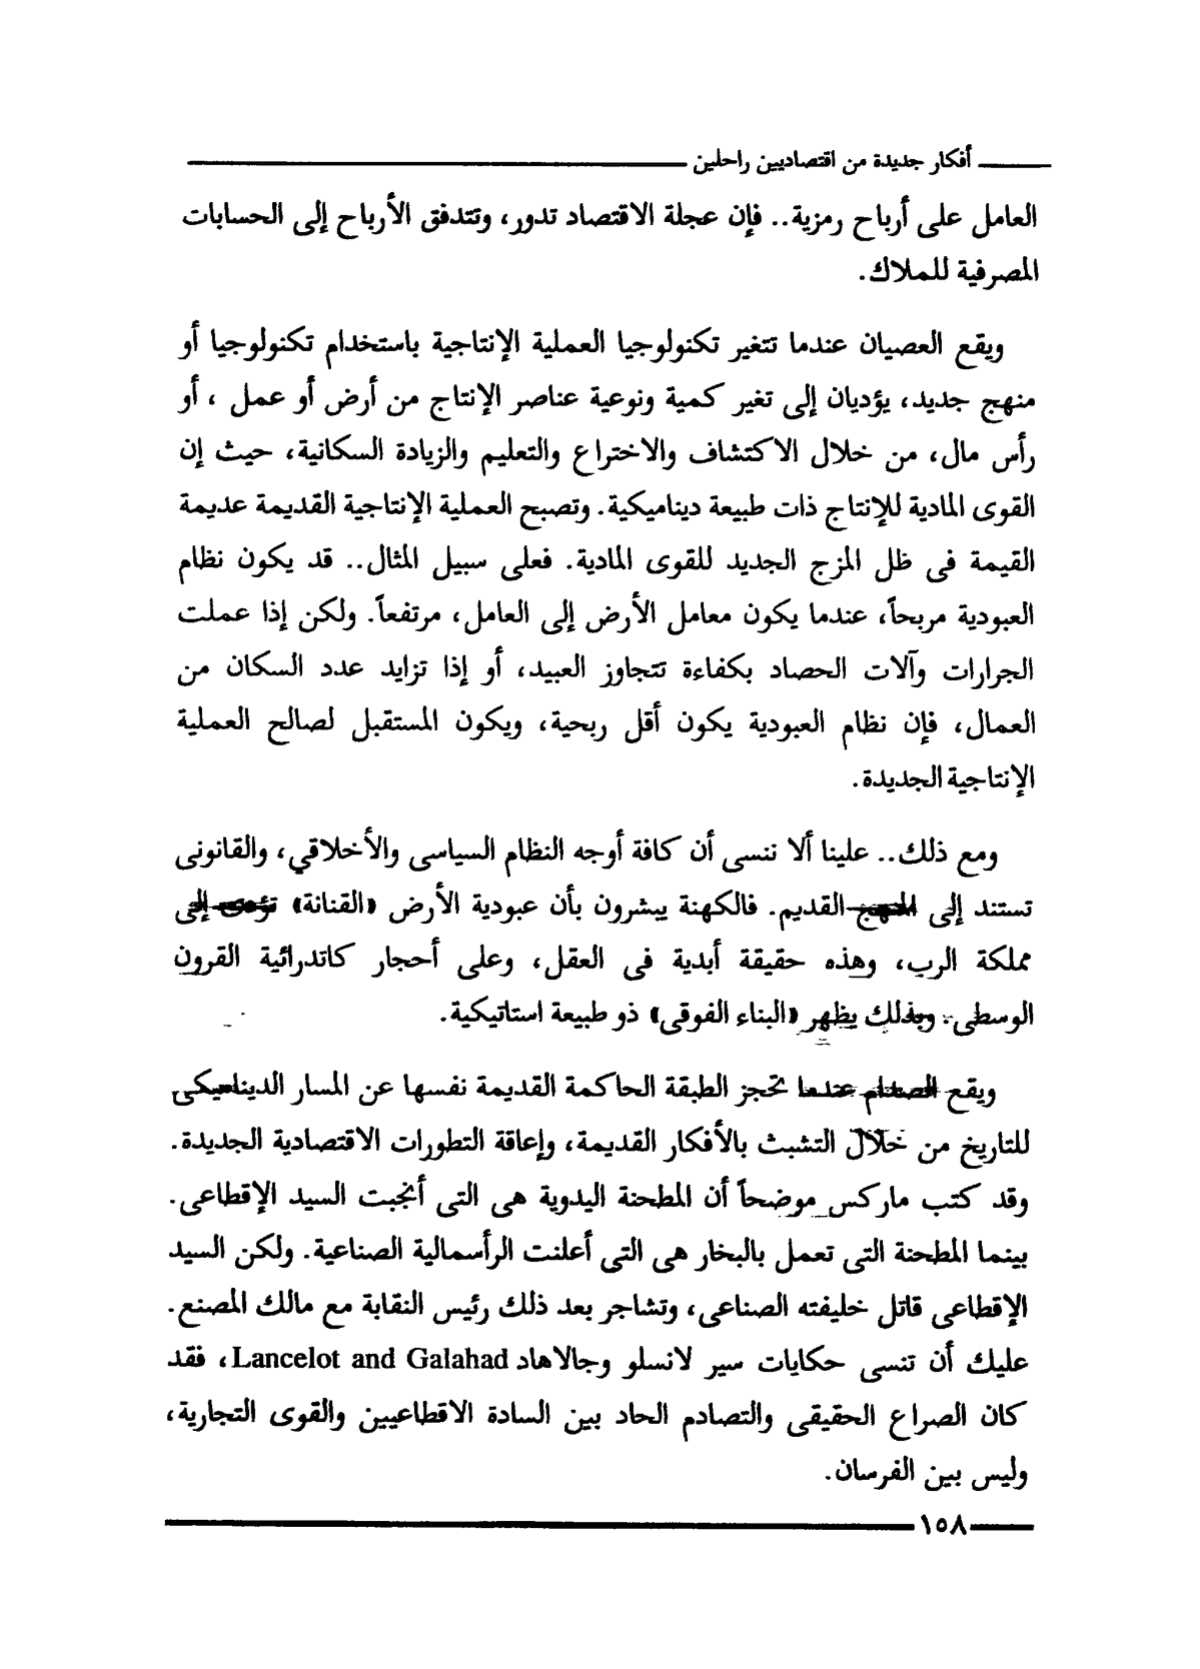 أفكار جديدة من اقتصاديين راحلين
العامل على أرباح رمزية.. فإن عجلة الاقتصاد تدور، وتتدفق الأرباح إلى الحسابات
المصرفية للملاك.
ويقع العصيان عندما تتغير تكنولوجيا العملية الإنتاجية باستخدام تكنولوجيا أو
منهج جديد، يؤديان إلى تغير كمية ونوعية عناصر الإنتاج من أرض أو عمل ، أو
رأس مال، من خلال الاكتشاف والاختراع والتعليم والزيادة السكانية، حيث إن
القوى المادية للإنتاج ذات طبيعة ديناميكية. وتصبح العملية الإنتاجية القديمة عديمة
القيمة فى ظل المزج الجديد للقوى المادية. فعلى سبيل المثال.. قد يكون نظام
العبودية مربحاً، عندما يكون معامل الأرض إلى العامل، مرتفعاً. ولكن إذا عملت
الجرارات وآلات الحصاد بكفاءة تتجاوز العبيد، أو إذا تزايد عدد السكان من
العمال، فإن نظام العبودية يكون أقل ربحية، ويكون المستقبل لصالح العملية
الإنتاجية الجديدة.
ومع ذلك.. علينا ألا ننسى أن كافة أوجه النظام السياسى والأخلاقي، والقانونى
تستند إلى المنهج القديم. فالكهنة يبشرون بأن عبودية الأرض «القنانة» تؤدى إلى
مملكة الرب، وهذه حقيقة أبدية فى العقل، وعلى أحجار كاتدرائية القرون
الوسطى. وبذلك يظهر «البناء الفوقى» ذو طبيعة استاتيكية.
ويقع الصدام عندما تحجز الطبقة الحاكمة القديمة نفسها عن المسار الديناميكى
للتاريخ من خلال التشبث بالأفكار القديمة، وإعاقة التطورات الاقتصادية الجديدة.
وقد كتب ماركس موضحاً أن المطحنة اليدوية هى التى أنجبت السيد الإقطاعى.
بينما المطحنة التى تعمل بالبخار هى التى أعلنت الرأسمالية الصناعية. ولكن السيد
الإقطاعى قاتل خليفته الصناعى، وتشاجر بعد ذلك رئيس النقابة مع مالك المصنع.
عليك أن تنسى حكايات سير لانسلو وجالاهاد Lancelot and Galahad، فقد
كان الصراع الحقيقى والتصادم الحاد بين السادة الاقطاعيين والقوى التجارية،
وليس بين الفرسان.
١٥٨